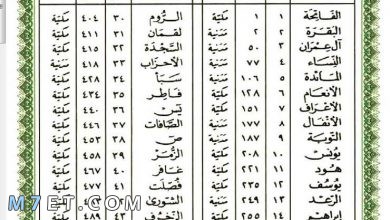 الفَاتِحَة ١ ١ مكيّة الرُّوم ٣٠ ٤٠٤ مكيّة
البَقَرَة ٢ ٢ مَدنية لقمَان ٣١ ٤١١ مكيّة
آل عِمرَان ٣ ٥٠ مَدنية السَّجْدَة ٣٢ ٤١٥ مكيّة
النِّسَاء ٤ ٧٧ مَدنية الأحزَاب ٣٣ ٤١٨ مَدنية
المَائدة ٥ ١٠٦ مَدنية سَبَأ ٣٤ ٤٢٨ مكيّة
الأنعَام ٦ ١٢٨ مكيّة فَاطِر ٣٥ ٤٣٤ مكيّة
الأعرَاف ٧ ١٥١ مكيّة يسٓ ٣٦ ٤٤٠ مكيّة
الأنفَال ٨ ١٧٧ مَدنية الصَّافات ٣٧ ٤٤٦ مكيّة
التوبَة ٩ ١٨٧ مَدنية صٓ ٣٨ ٤٥٣ مكيّة
يُونس ١٠ ٢٠٨ مكيّة الزُّمَر ٣٩ ٤٥٨ مكيّة
هُود ١١ ٢٢١ مكيّة غَافر ٤٠ ٤٦٧ مكيّة
يُوسُف ١٢ ٢٣٥ مكيّة فُصّلَت ٤١ ٤٧٧ مكيّة
الرّعد ١٣ ٢٤٩ مَدنية الشّورى ٤٢ ٤٨٣ مكيّة
إبراهِيم ١٤ ٢٥٥ مكيّة الزّخرُف ٤٣ ٤٨٩ مكيّة
M7ET.COM